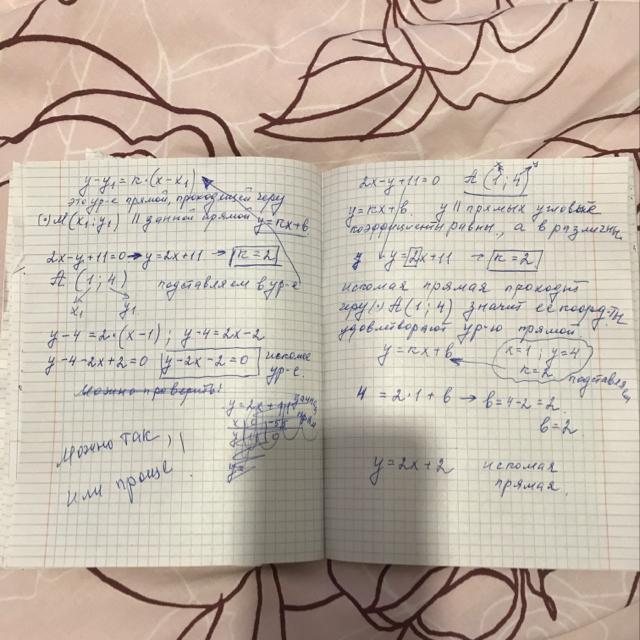 y-y₁=k·(x-x₁)
это ур-е прямой, проходящей через
(·) M(x₁; y₁) || данной прямой y=kx+b
2x-y+11=0 → y=2x+11 → k=2
A (1; 4) подставляем в ур-е
x₁ y₁
y-4=2·(x-1); y-4=2x-2
y-4-2x+2=0 y-2x-2=0 искомое
ур-е
Можно проверить
y=2x+11
y=
Можно так
или проще
2x-y+11=0 A(1; 4)
x y
y=kx+b. у || прямых угловые
коэффициенты равны, а b различны
y y=2x+11 → k=2
искомая прямая проходит
через (·) A(1; 4) значит её коорд-ты
удовлетворяют ур-ю прямой
y=kx+b x=1; y=4
k=2
подставляем
4 = 2·1+b → b=4-2=2
b=2
y=2x+2 искомая
прямая